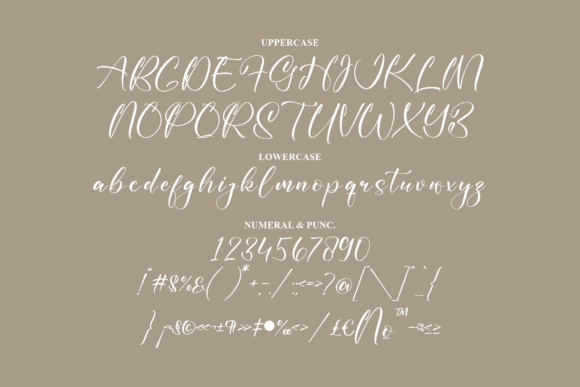 UPPERCASE
ABCDEFGHIJKLM
NOPQRSTUVWXYZ
LOWERCASE
abcdefghijklmnopqrstuvwxyz
NUMERAL & PUNC.
1234567890
!"#$%&()*+,-./:;<=>?@[\]^_`{
}¡§©«¬±¶»‡●‰<>/£€№™